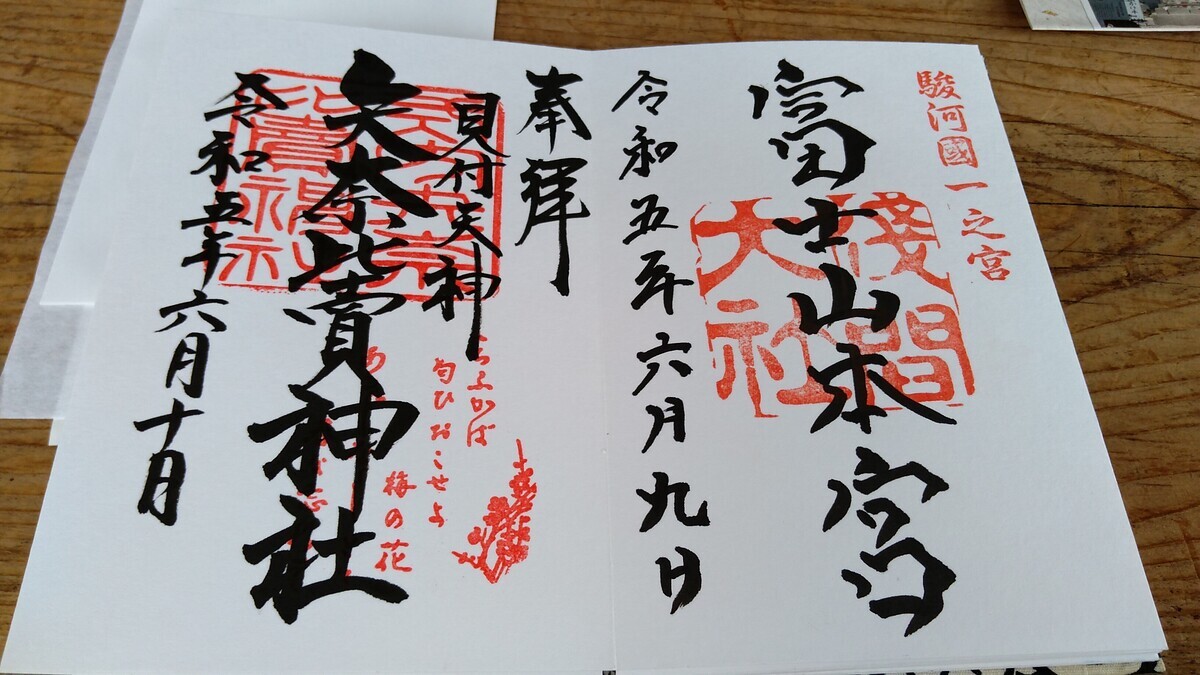 駿河國一之宮
富士山本宮
淺間
大社
令和五年六月九日
奉拝
見付天神
矢奈比賣神社
令和五年六月十日
ちふかば
匂ひおこせよ
梅の花